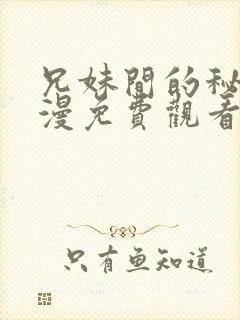 兄妹間的秘
漫免費觀看
只有鱼知道